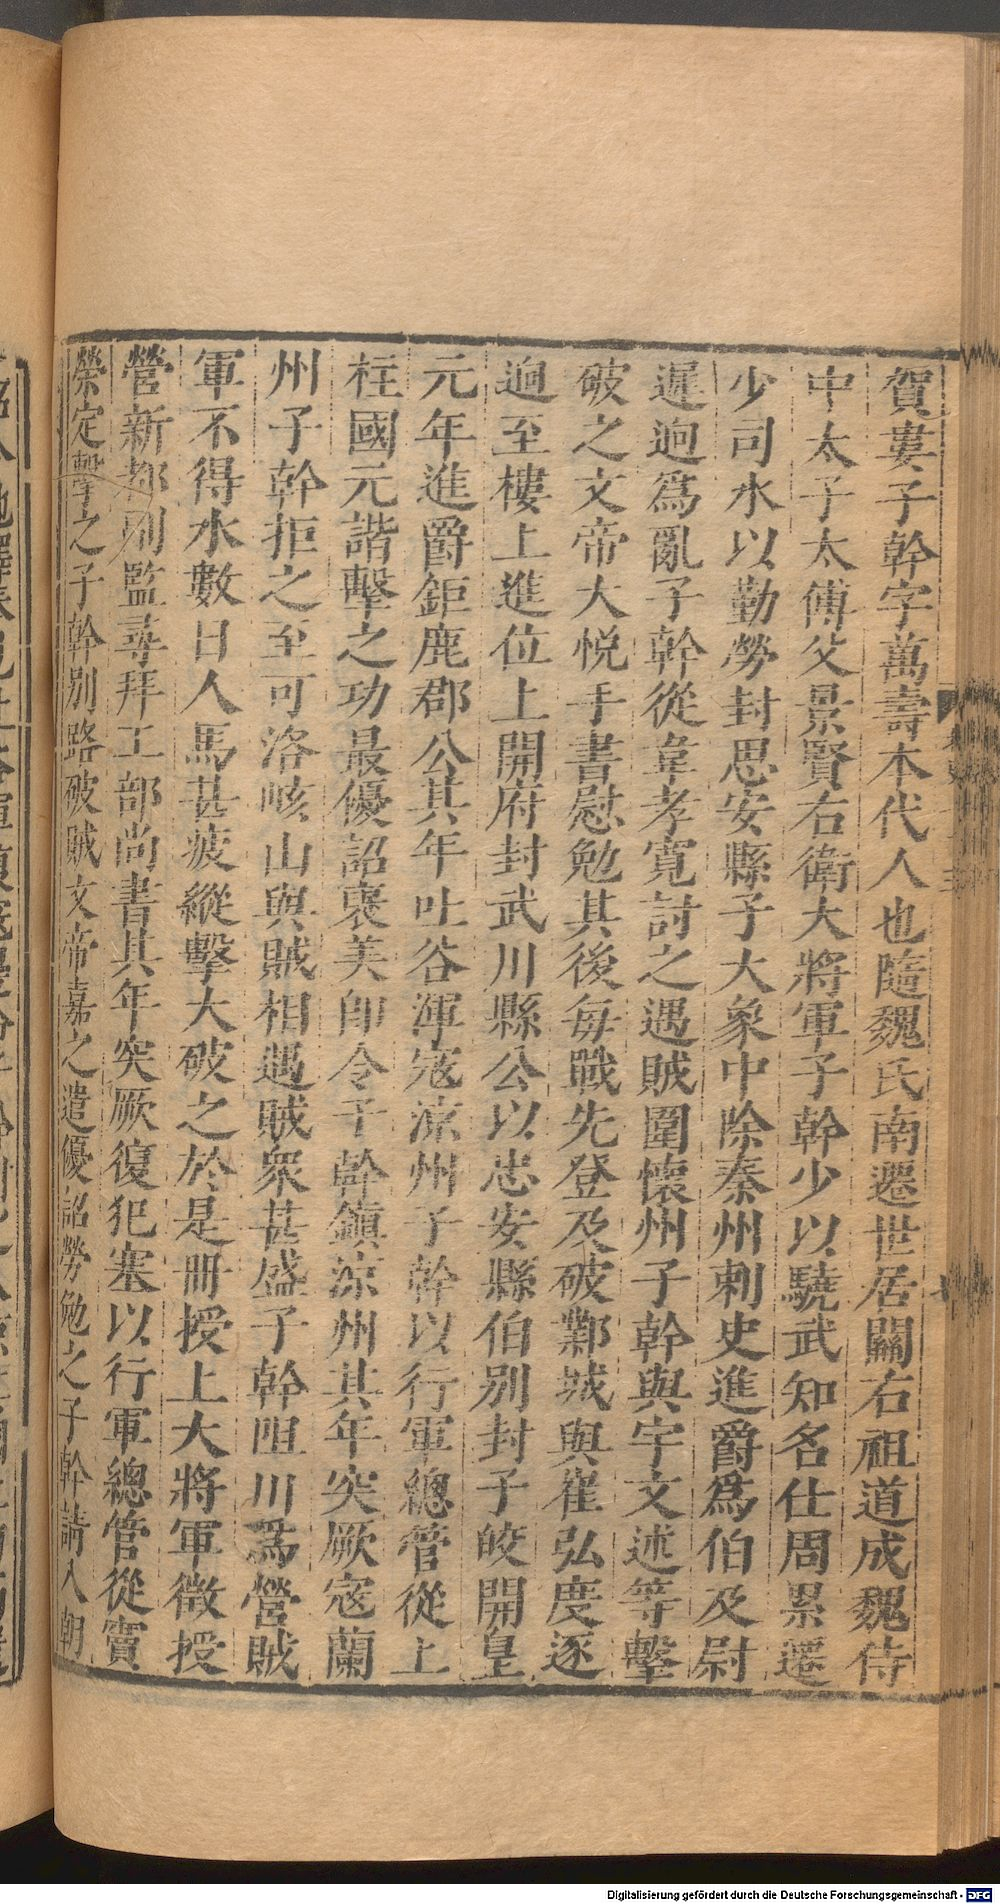 賀婁子幹字萬壽本代人也隨魏氏南遷世居關右祖道成魏侍
中太子太傅父景賢右衛大將軍子幹少以驍武知名仕周累遷
少司水以勤勞封思安縣子大象中除秦州刺史進爵爲伯及尉
遲迥爲亂子幹從韋孝寬討之遇賊圍懷州子幹與宇文述等擊
破之文帝大悅手書慰勉其後每戰先登及破鄴城與崔弘度逐
迥至樓上進位上開府封武川縣公以忠安縣伯別封子皎開皇
元年進爵鉅鹿郡公其年吐谷渾寇涼州子幹以行軍總管從上
柱國元諧擊之功最優詔褒美即令子幹鎮涼州其年突厥寇蘭
州子幹拒之至可洛峐山與賊相遇賊衆甚盛子幹阻川爲營賊
軍不得水數日人馬甚疲縱擊大破之於是冊授上大將軍徵授
營新都副監尋拜工部尚書其年突厥復犯塞以行軍總管從竇
榮定擊之子幹別路破賊文帝嘉之遣優詔勞勉之子幹請入朝
Digitalisierung gefördert durch die Deutsche Forschungsgemeinschaft - DFG